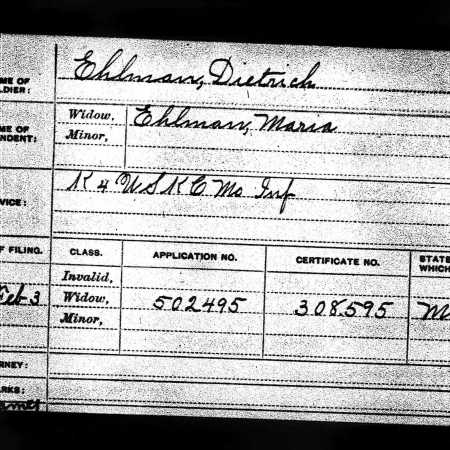 ME OF
LDIER:
Ehlman, Dietrich
ME OF
NDENT:
Widow, Ehlman, Maria
Minor,
VICE:
K 4 U S R C Mo Inf
F FILING.
CLASS.
APPLICATION NO.
CERTIFICATE NO.
STATE
WHICH
Invalid,
Feb 3
Widow,
502495
308.595
M
Minor,
RNEY:
RKS: